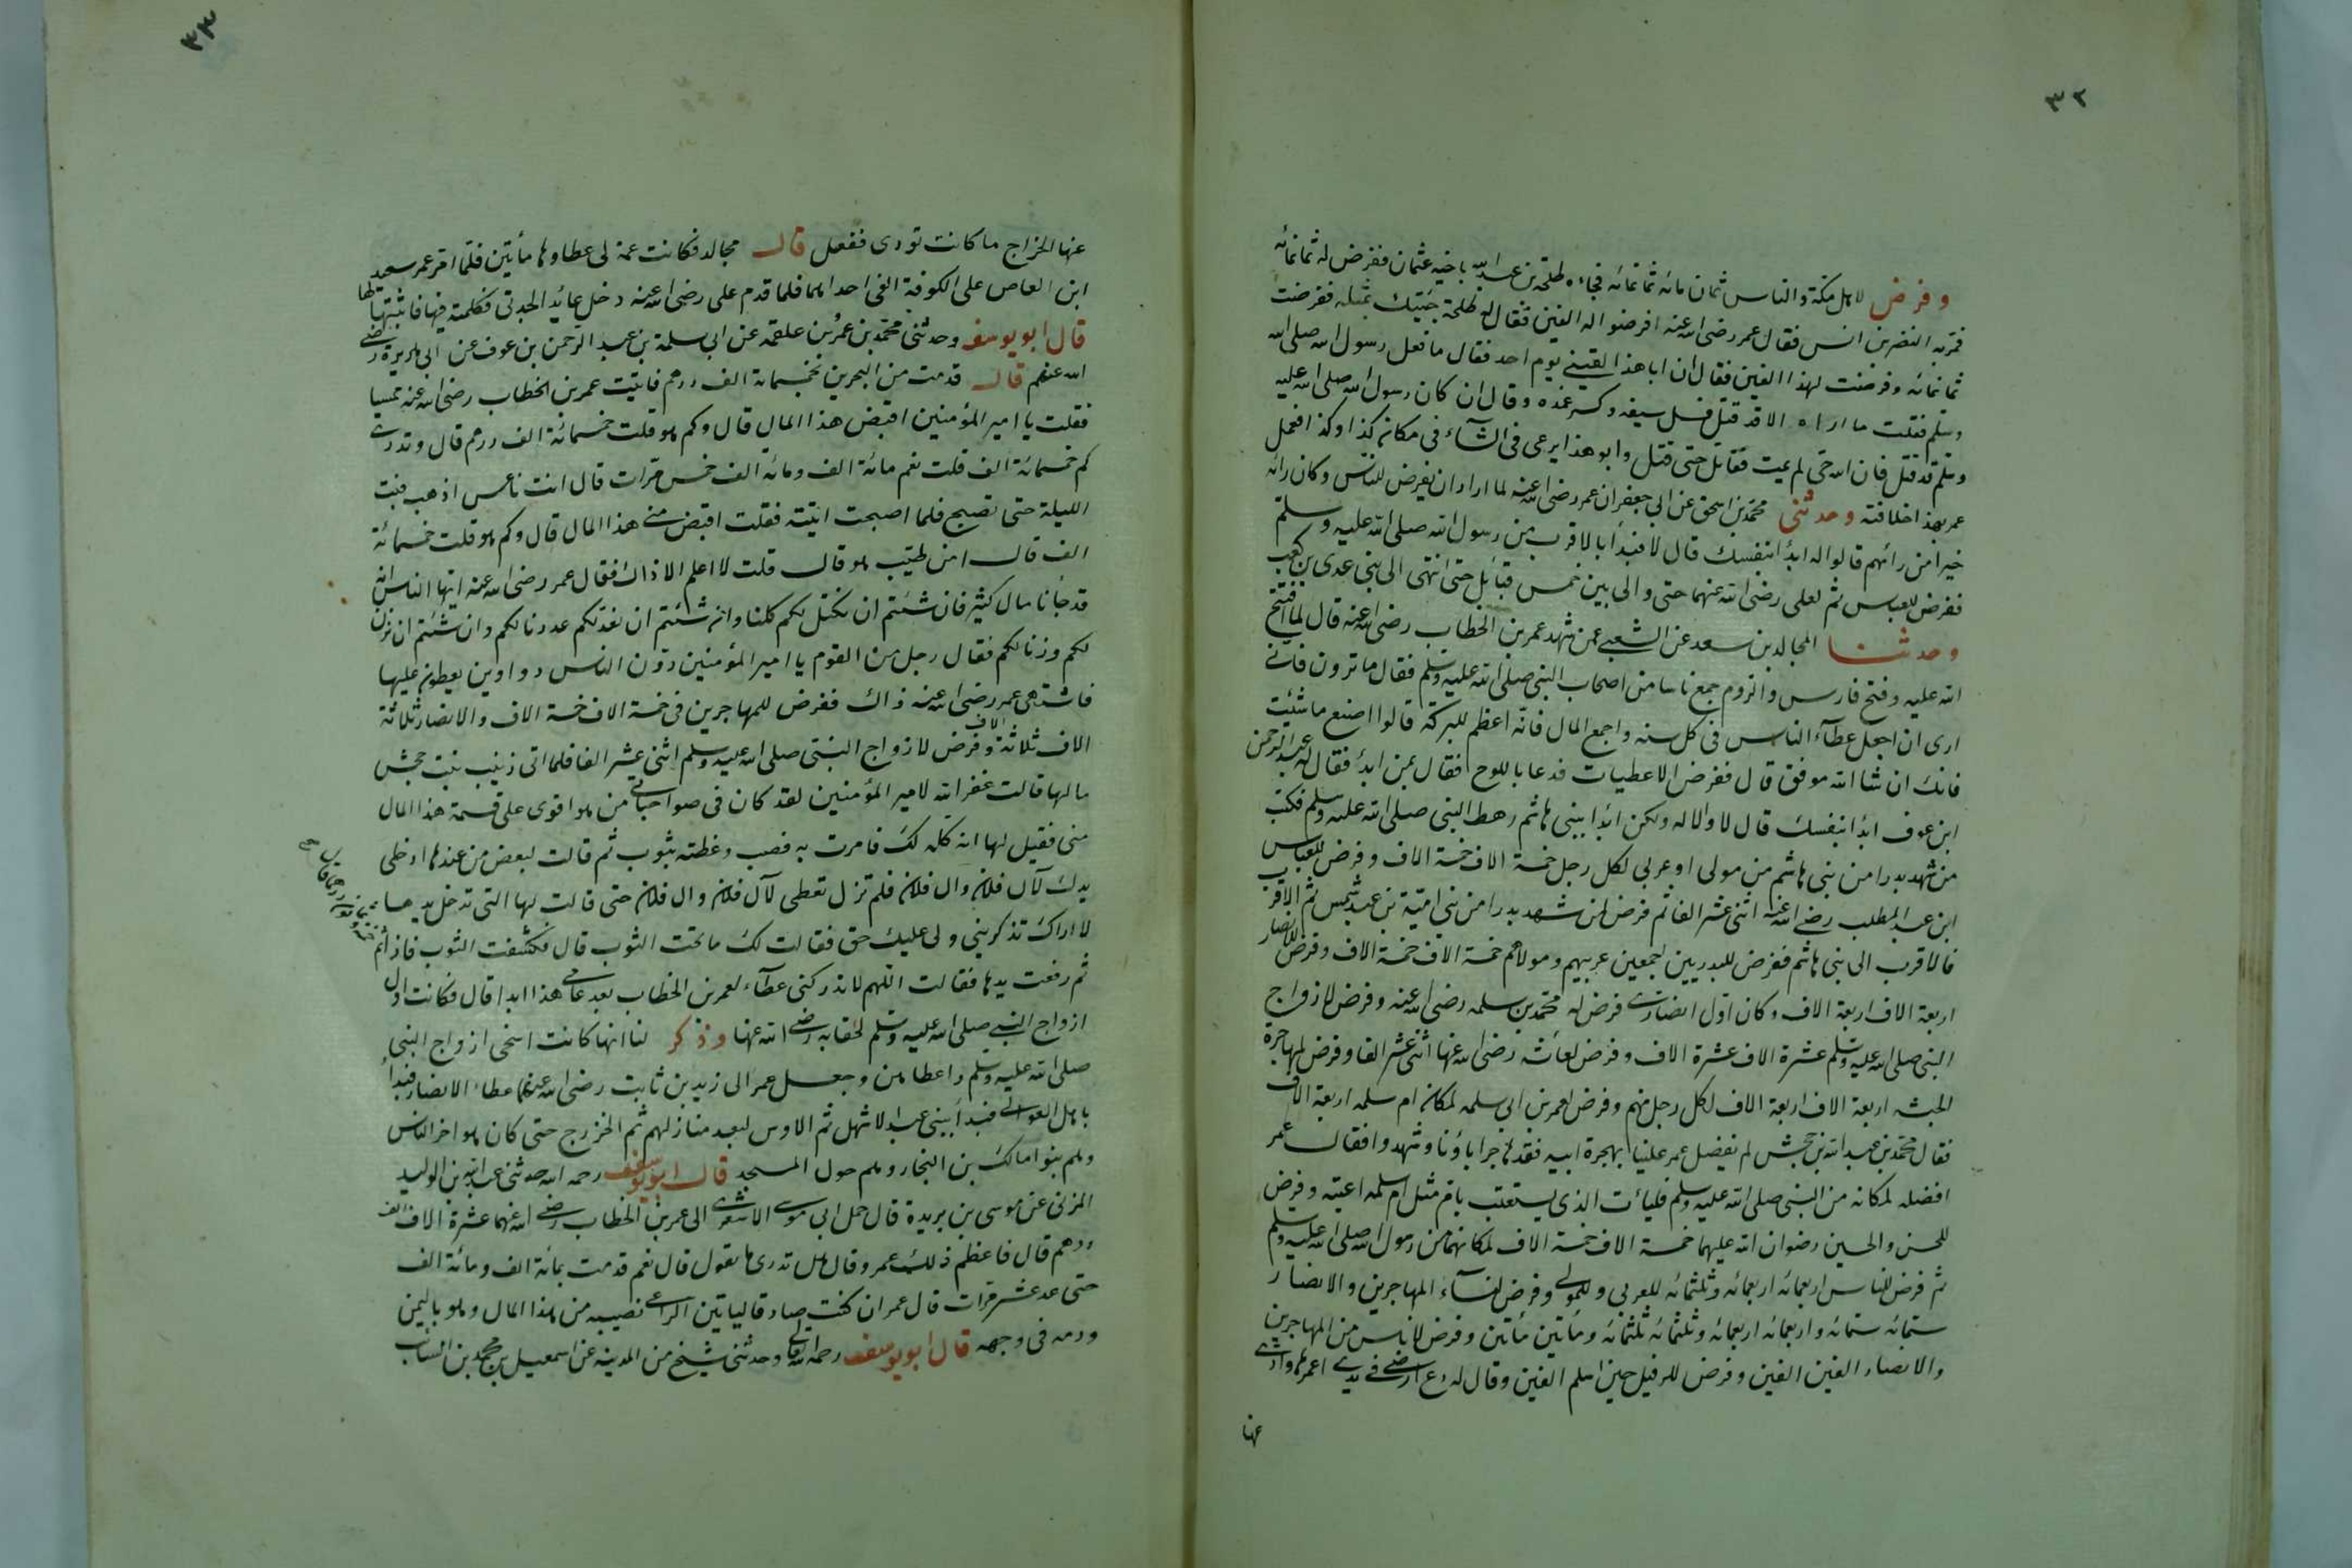 ٣٢
وفرض لاهل مكة والناس ثمان مائه ثمانمائه فجاءه طلحة بن عبد الله باخيه عثمان ففرض له ثمانمائه
فمر به النضر بن انس فقال عمر رضى الله عنه افرضوا له الفين فقال له طلحة جئتك بمثله ففرضت
ثمانمائه وفرضت لهذا الفين فقال ان ابا هذا لقينى يوم احد فقال ما فعل رسول الله صلى الله
وسلم فقلت ما اراه الا قد قتل فسل سيفه وكسر غمده وقال ان كان رسول الله صلى الله عليه
وسلم قد قتل فان الله حى لم يمت فقاتل حتى قتل وابو هذا يرعى فى الشآء فى مكان كذا وكذا فعمل
عمر بهذا خلافته وحدثنى محمد بن اسحق عن ابى جعفر ان عمر رضى الله عنه لما اراد ان يفرض للناس وكان رايه
خيرا من رائهم قالوا له ابدأ بنفسك قال لا فبدأ بالاقرب من رسول الله صلى الله عليه وسلم
ففرض للعباس ثم لعلى رضى الله عنهما حتى والى بين خمس قبائل حتى انتهى الى بنى عدى بن كعب
وحدثنا المجالد بن سعد عن الشعبى عمن شهد عمر بن الخطاب رضى الله عنه قال لما افتتح
الله عليه وفتح فارس والروم جمع ناسا من اصحاب النبى صلى الله عليه وسلم فقال ما ترون فانى
ارى ان اجعل عطآء الناس فى كل سنه واجمع المال فانه اعظم للبركة قالوا اصنع ما شئت
فانك ان شا الله موفق قال ففرض الاعطيات فدعا باللوح فقال بمن ابدأ فقال له عبد الرحمن
ابن عوف ابدأ بنفسك قال لا والله ولكن ابدأ ببنى هاشم رهط النبى صلى الله عليه وسلم فكتب
من شهد بدرا من بنى هاشم من مولى او عربى لكل رجل خمسة الاف خمسة الاف وفرض للعباس
ابن عبد المطلب رضى الله عنه اثنى عشر الفا ثم فرض لمن شهد بدرا من بنى امية بن عبد شمس ثم الاقرب
فالاقرب الى بنى هاشم ففرض للبدريين اجمعين عربيهم ومولاهم خمسة الاف خمسة الاف وفرض للانصار
اربعة الاف اربعة الاف وكان اول انصارى فرض له محمد بن سلمه رضى الله عنه وفرض لازواج
النبى صلى الله عليه وسلم عشرة الاف عشرة الاف وفرض لعائشه رضى الله عنها اثنى عشر الفا وفرض لمهاجرة
الحبشه اربعة الاف اربعة الاف لكل رجل منهم وفرض لعمر بن ابى سلمه لمكان ام سلمه اربعة الاف
فقال محمد بن عبد الله بن جحش لم يفضل عمر علينا بهجرة ابيه فقد هاجر اباؤنا وشهدوا فقال عمر
افضله لمكانه من النبى صلى الله عليه وسلم فليأت الذى يستعتب بام مثل ام سلمه اعتبه وفرض
للحسن والحسين رضوان الله عليهما خمسة الاف خمسة الاف لمكانهما من رسول الله صلى الله عليه وسلم
ثم فرض للناس اربعمائه اربعمائه وثلثمائه للعربى وللمولى وفرض لنسآء المهاجرين والانصار
ستمائه ستمائه واربعمائه اربعمائه وثلثمائه ثلثمائه ومأتين مأتين وفرض لاناس من المهاجرين
والانصار الفين الفين وفرض للرفيل حين اسلم الفين وقال له دع ارضى فى يدى اعمرها وادى
عنها
٣٣
عنها الخراج ما كانت تودى ففعل قال مجالد فكانت عمة لى عطاوها مأتين فلما امر عمر سعيد
ابن العاص على الكوفة الغى احدا هما فلما قدم على رضى الله عنه دخل عائد الجدتى فكلمته فيها فاثبتها لها
قال ابو يوسف وحدثنى محمد بن عمر بن علقمه عن ابى سلمة بن عبد الرحمن بن عوف عن ابى هريرة رضى
الله عنهم قال قدمت من البحرين بخمسمائة الف درهم فاتيت عمر بن الخطاب رضى الله عنه ممسيا
فقلت يا امير المؤمنين اقبض هذا المال قال وكم هو قلت خمسمائة الف درهم قال وتدرى
كم خمسمائة الف قلت نعم مائة الف ومائه الف خمس مرات قال انت ناعس اذهب فبت
الليلة حتى تصبح فلما اصبحت اتيته فقلت اقبض منى هذا المال قال وكم هو قلت خمسمائة
الف قال امن طيب هو قال قلت لا اعلم الا ذاك فقال عمر رضى الله عنه ايها الناس انه
قد جأنا مال كثير فان شئتم ان نكتل لكم كلنا وان شئتم ان نعد لكم عددنا لكم وان شئتم ان نزن
لكم وزنا لكم فقال رجل من القوم يا امير المؤمنين دوّن الناس دواوين يعطون عليها
فاشتهى عمر رضى الله عنه ذاك ففرض للمهاجرين فى خمسة الاف خمسة الاف والانصار ثلاثة
الاف ثلاثة الاف وفرض لازواج النبى صلى الله عليه وسلم اثنى عشر الفا فلما اتى زينب بنت جحش
مالها قالت غفر الله لامير المؤمنين لقد كان فى صواحباتى من هو اقوى على قسمة هذا المال
منى فقيل لها انه كله لك فامرت به فصب وغطته بثوب ثم قالت لبعض من عندها ادخلى
يدك لآل فلان وال فلان فلم تزل تعطى لآل فلان وال فلان حتى قالت لها التى تدخل يدها
لا اراك تذكرينى ولى عليك حق فقالت لك ما تحت الثوب قال فكشفت الثوب فاذا ثم
ثم رفعت يدها فقالت اللهم لا تدركنى عطآء لعمر بن الخطاب بعد عامى هذا ابدا قال فكانت اول
ازواج النبى صلى الله عليه وسلم لحقا به رضى الله عنها وذكر لنا انها كانت اسخى ازواج النبى
صلى الله عليه وسلم واعطاهن وجعل عمر الى زيد بن ثابت رضى الله عنهما عطاء الانصار فبدأ
باهل العوالى فبدأ ببنى عبد الاشهل ثم الاوس لبعد منازلهم ثم الخزرج حتى كان هو اخر الناس
وهم بنوا مالك بن النجار وهم حول المسجد قال ابو يوسف رحمه الله حدثنى عبد الله بن الوليد
المزنى عن موسى بن بريدة قال حمل ابى موسى الاشعرى الى عمر بن الخطاب رضى الله عنهما عشرة الاف الف
درهم قال فاعظم ذلك عمر وقال هل تدرى ما تقول قال نعم قدمت بمائة الف ومائة الف
حتى عد عشر مرات قال عمر ان كنت صادقا لياتين الراعى نصيبه من هذا المال وهو باليمن
ودمه فى وجهه قال ابو يوسف رحمه الله تعالى وحدثنى شيخ من المدينه عن اسمعيل بن محمد بن السائب